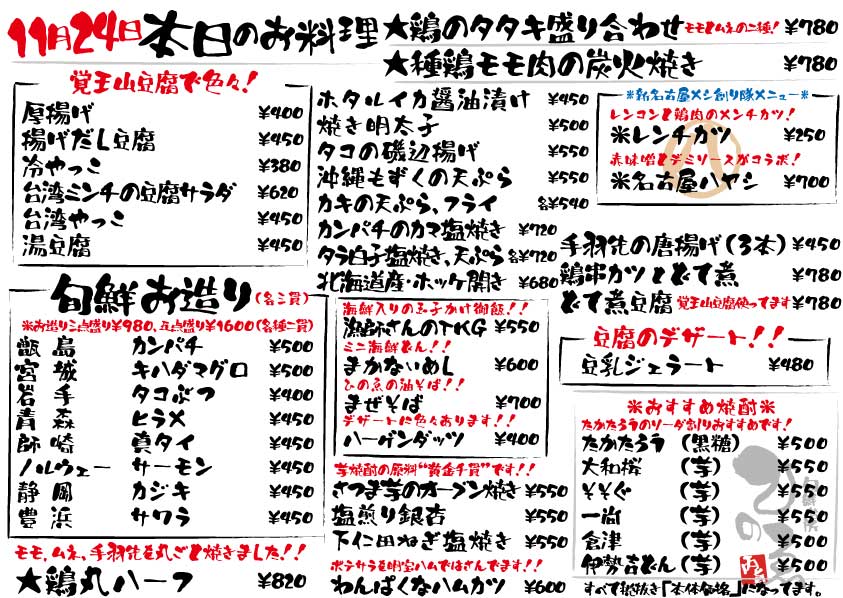 11月24日本日のお料理
★鶏のタタキ盛り合わせ モモとムネの二種! ¥780
★種鶏モモ肉の炭火焼き ¥780
覚王山豆腐で色々!
厚揚げ ¥400
揚げだし豆腐 ¥450
冷やっこ ¥380
台湾ミンチの豆腐サラダ ¥620
台湾やっこ ¥450
湯豆腐 ¥450
旬鮮お造り(各三貫)
※お造り三点盛り¥980、五点盛り¥1600(各種二貫)
甑島 カンパチ ¥500
宮城 キハダマグロ ¥500
岩手 タコぶつ ¥400
青森 ヒラメ ¥450
師崎 真タイ ¥450
ノルウェー サーモン ¥450
静岡 カジキ ¥450
豊浜 サワラ ¥450
モモ、ムネ、手羽先を丸ごと焼きました!!
★鶏丸ハーフ ¥820
ホタルイカ醤油漬け ¥450
焼き明太子 ¥500
タコの磯辺揚げ ¥550
沖縄もずくの天ぷら ¥550
カキの天ぷら、フライ 各¥540
カンパチのカマ塩焼き ¥720
タラ白子塩焼き、天ぷら 各¥720
北海道産・ホッケ開き ¥680
海鮮入りの玉子かけ御飯!!
漁師さんのTKG ¥550
ミニ海鮮どん!!
まかないめし ¥600
ひの魚の油そば!!
まぜそば ¥700
デザートに色々あります!!
ハーゲンダッツ ¥400
芋焼酎の原料"黄金千貫"です!!
さつま芋のオーブン焼き ¥550
塩煎り銀杏 ¥550
下仁田ねぎ塩焼き ¥550
ポテサラを明宝ハムではさんでます!!
わんぱくなハムカツ ¥600
※新名古屋メシ創り隊メニュー※
レンコンと鶏肉のメンチカツ!
※レンチカツ ¥250
赤味噌とデミソースがコラボ!
※名古屋ハヤシ ¥700
手羽先の唐揚げ(3本) ¥450
鶏串カツとどて煮 ¥780
どて煮豆腐 覚王山豆腐使ってます ¥780
豆腐のデザート!!
豆乳ジェラート ¥480
※おすすめ焼酎※
たかたろうのソーダ割りおすすめです!
たかたろう (黒糖) ¥500
大和桜 (芋) ¥550
そそぐ (芋) ¥550
一尚 (芋) ¥500
倉津 (芋) ¥500
伊勢吉どん (芋) ¥500
すべて税抜き「本体価格」になってます。